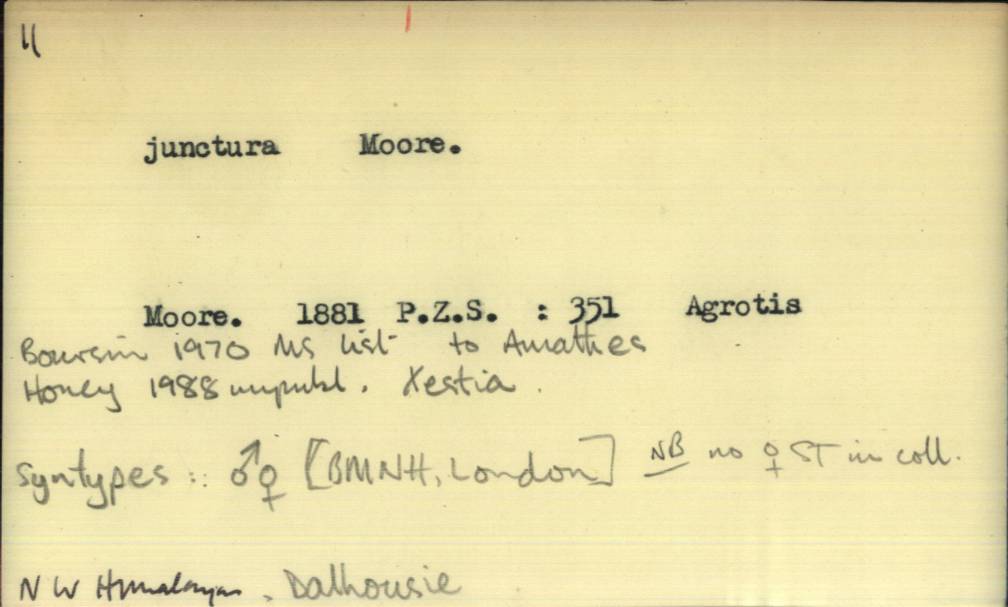 11
junctura Moore.
Moore. 1881 P.Z.S. : 351 Agrotis
Boursin 1970 MS list to Amathes
Honey 1988 unpubl. Xestia.
Syntypes :: ♂♀ [BMNH, London] NB no ♀ ST in coll.
N W Himalayas, Dalhousie